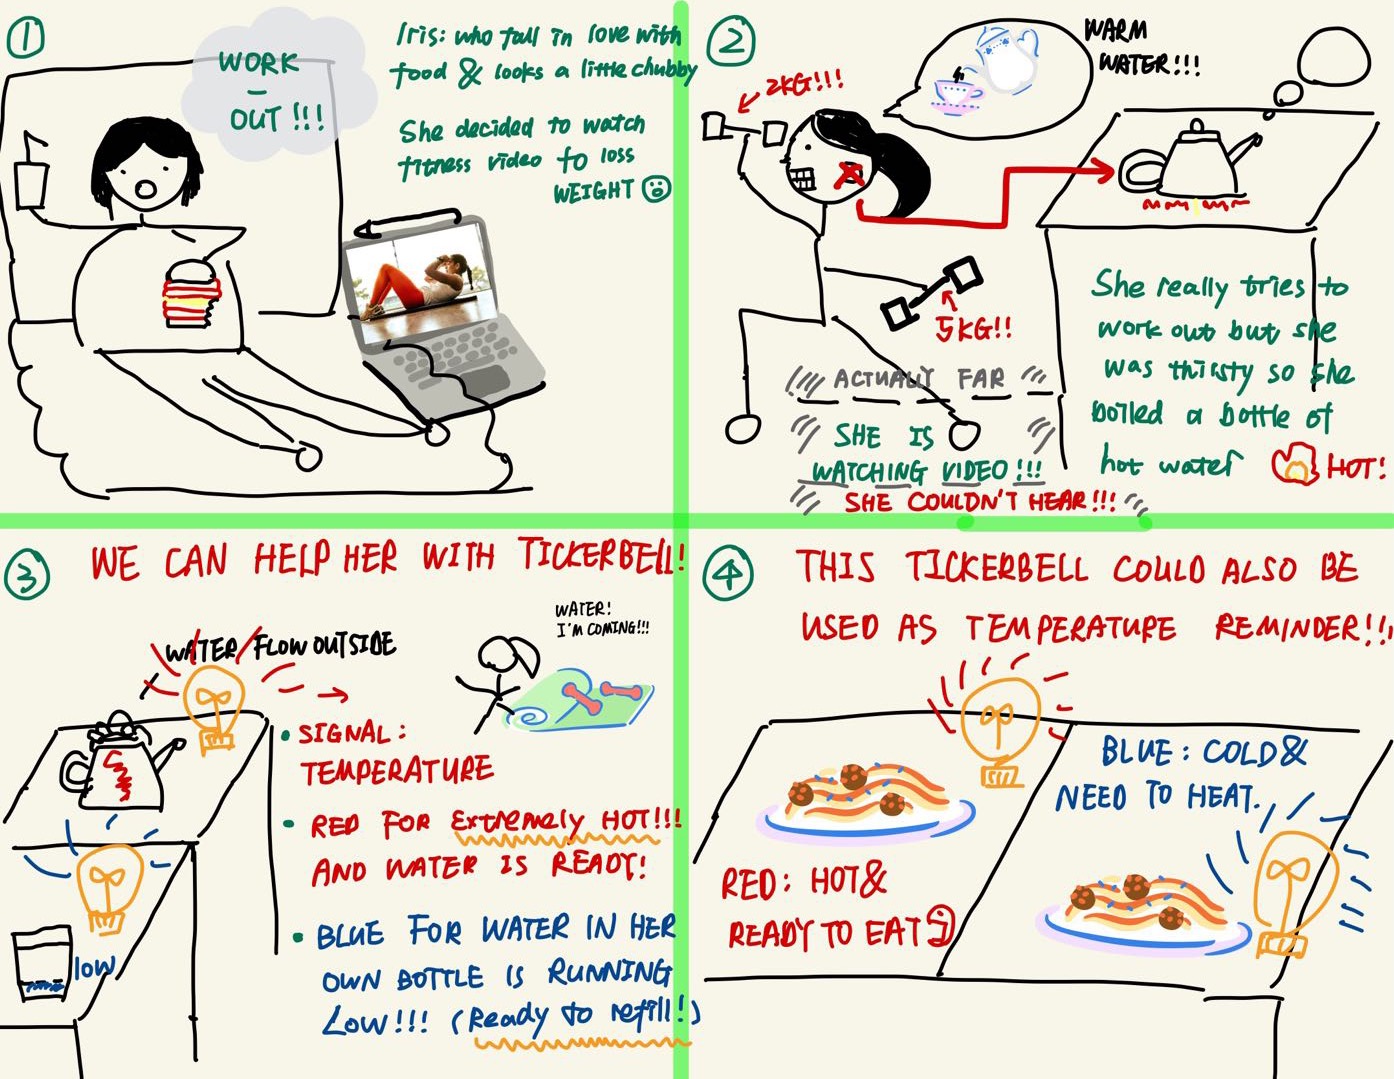 1
WORK
-
OUT !!!
Iris: who fall in love with
food & looks a little chubby
She decided to watch
fitness video to loss
WEIGHT
2
2KG!!!
WARM
WATER!!!
5KG!!
ACTUALLY FAR
SHE IS
WATCHING VIDEO!!!
SHE COULDN'T HEAR!!!
She really tries to
work out but she
was thirsty so she
boiled a bottle of
hot water HOT!
3
WE CAN HELP HER WITH TICKERBELL!
WATER FLOW OUTSIDE
WATER!
I'M COMING!!!
• SIGNAL:
TEMPERATURE
• RED FOR Extremely HOT!!!
AND WATER IS READY!
• BLUE FOR WATER IN HER
OWN BOTTLE IS RUNNING
LOW!!! (Ready to refill!)
low
4
THIS TICKERBELL COULD ALSO BE
USED AS TEMPERATURE REMINDER!!,
RED: HOT&
READY TO EAT
BLUE: COLD&
NEED TO HEAT.